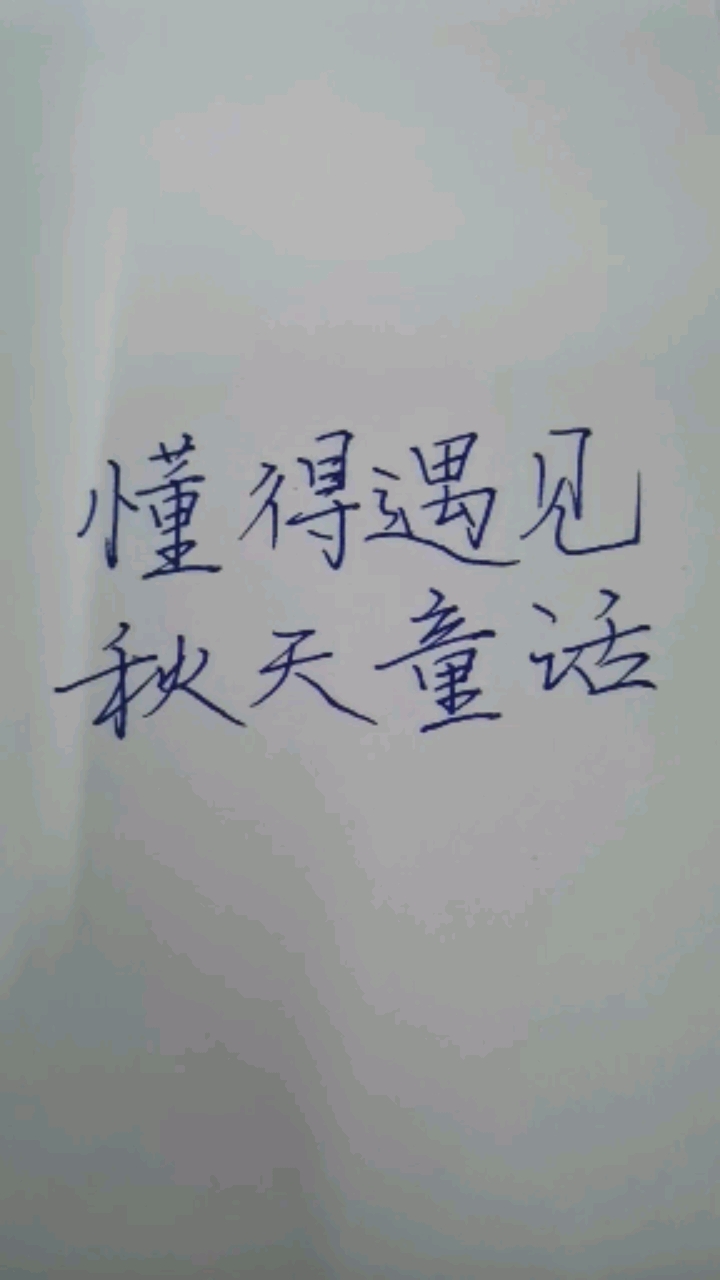 懂得遇见
秋天童话